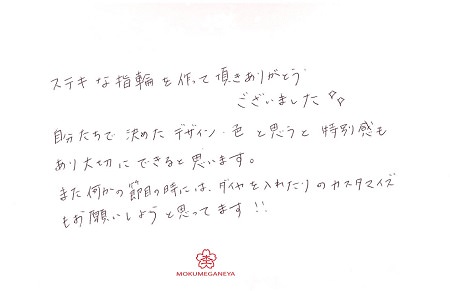 ステキな指輪を作って頂きありがとう
ございました♡♡
自分たちで決めたデザイン・色と思うと特別感も
あり大切にできると思います。
また何かの節目の時には、ダイヤを入れたりのカスタマイズ
もお願いしようと思ってます!!
MOKUMEGANEYA